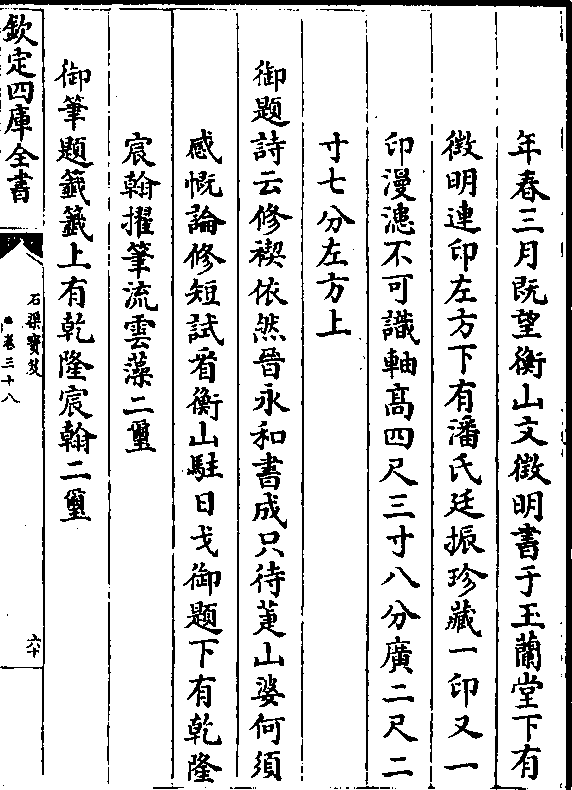 年春三月既望衡山文徵明書于玉蘭堂下有
徵明連印左方下有潘氏廷振珍藏一印又一
印漫漶不可識軸髙四尺三寸八分廣二尺二
寸七分左方上
御題詩云修禊依然晉永和書成只待蕺山婆何須
感慨論修短試看衡山駐日戈御題下有乾隆
宸翰擢筆流雲藻二璽
御筆題籤籤上有乾隆宸翰二璽
欽定四庫全書
石渠寳笈
卷三十八
六十